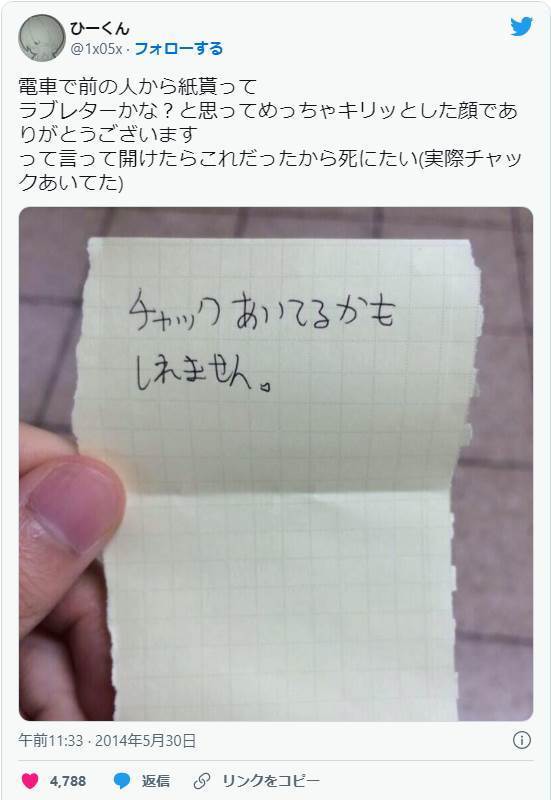 ひーくん
@1x05x · フォローする
電車で前の人から紙貰って
ラブレターかな？と思ってめっちゃキリッとした顔であ
りがとうございます
って言って開けたらこれだったから死にたい(実際チャッ
クあいてた)
チャックあいてるかも
しれません。
午前11:33 · 2014年5月30日
4,788 返信 リンクをコピー